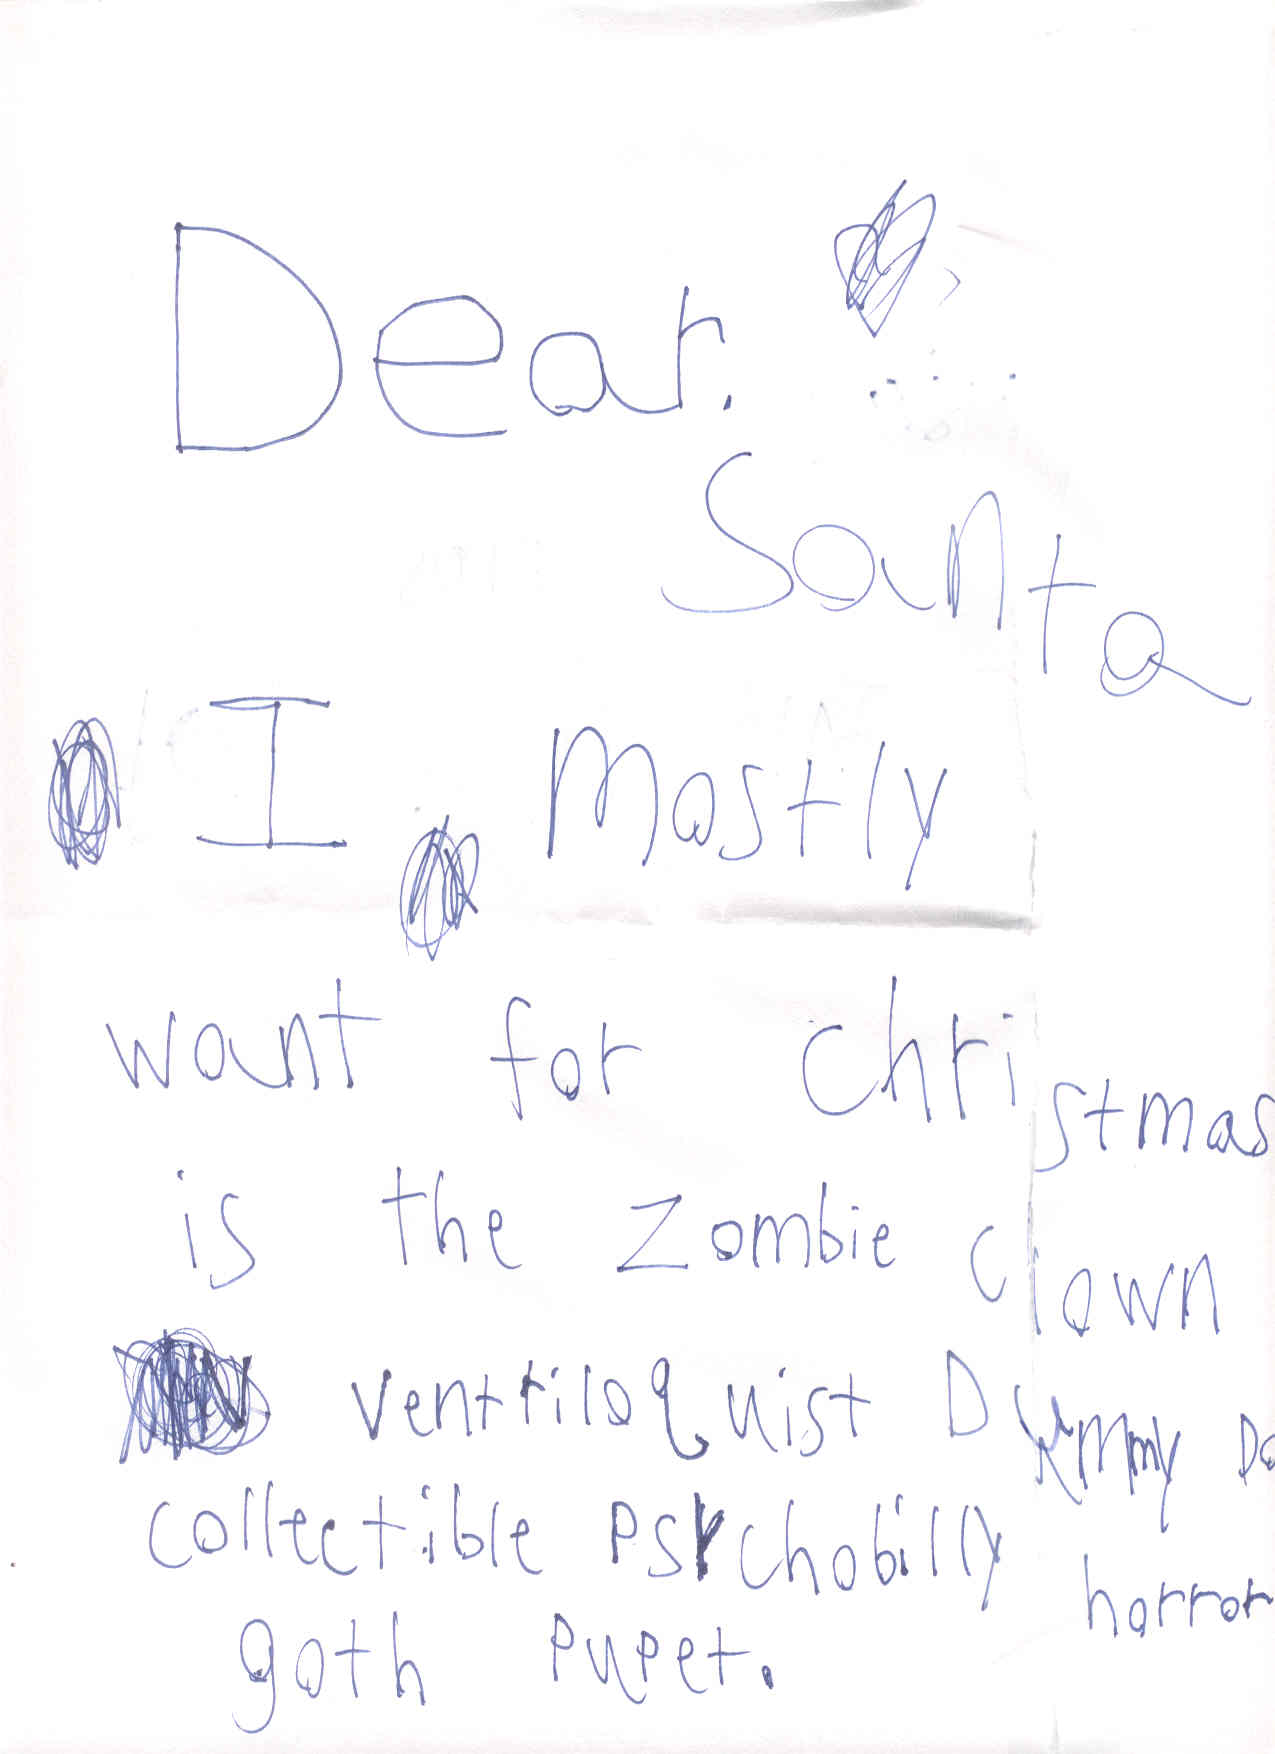 Dear.
Santa
I Mostly
want for christmas
is the zombie clown
ventriloquist Dummy Do
collectible Psychobilly horror
goth Pupet.